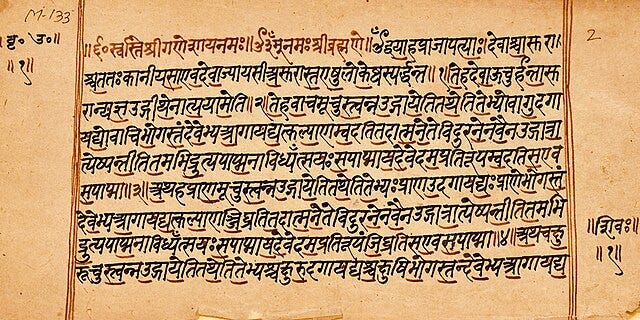 M-133
2
बृ॰ उ॰॥
॥१॥
॥६०स्वस्तिश्रीगणेशायनमः॥ॐनमःश्रीब्रह्मणे॥ॐद्वयाहप्राजापत्याःदेवाश्चासुरा
श्चततःकानीयसाएवदेवाज्यायसाअसुरास्तएषुलोकेष्वस्पर्द्धन्त॥१॥तेहदेवाऊचुर्हन्तासु
रान्यज्ञउद्गीथेनात्ययामेति॥२॥तेहवाचमूचुस्त्वन्नउद्गायेतितथेतितेभ्योवागुदगा
यद्योवाचिभोगस्तंदेवेभ्यआगायद्यत्कल्याणम्वदतितदात्मनेतेविदुरनेनवैनउद्गात्रा
त्येष्यन्तीतितमभिद्रुत्यपाप्मनाविध्यँत्सयःसपाप्मायदेवेदमप्रतिरूपम्वदतिसएव
सपाप्मा॥३॥अथहप्राणमूचुस्त्वन्नउद्गायेतितथेतितेभ्यःप्राणउदगायद्यःप्राणेभोगस्तं
देवेभ्यआगायद्यत्कल्याणञ्जिघ्रतितदात्मनेतेविदुरनेनवैनउद्गात्रात्येष्यन्तीतितमभि
द्रुत्यपाप्मनाविध्यँत्सयःसपाप्मायदेवेदमप्रतिरूपंजिघ्रतिसएवसपाप्मा॥४॥अथचक्षु
रूचुस्त्वन्नउद्गायेतितथेतितेभ्यश्चक्षुरुदगायद्यश्चक्षुषिभोगस्तन्देवेभ्यआगायद्य
॥शिवः॥
॥१॥